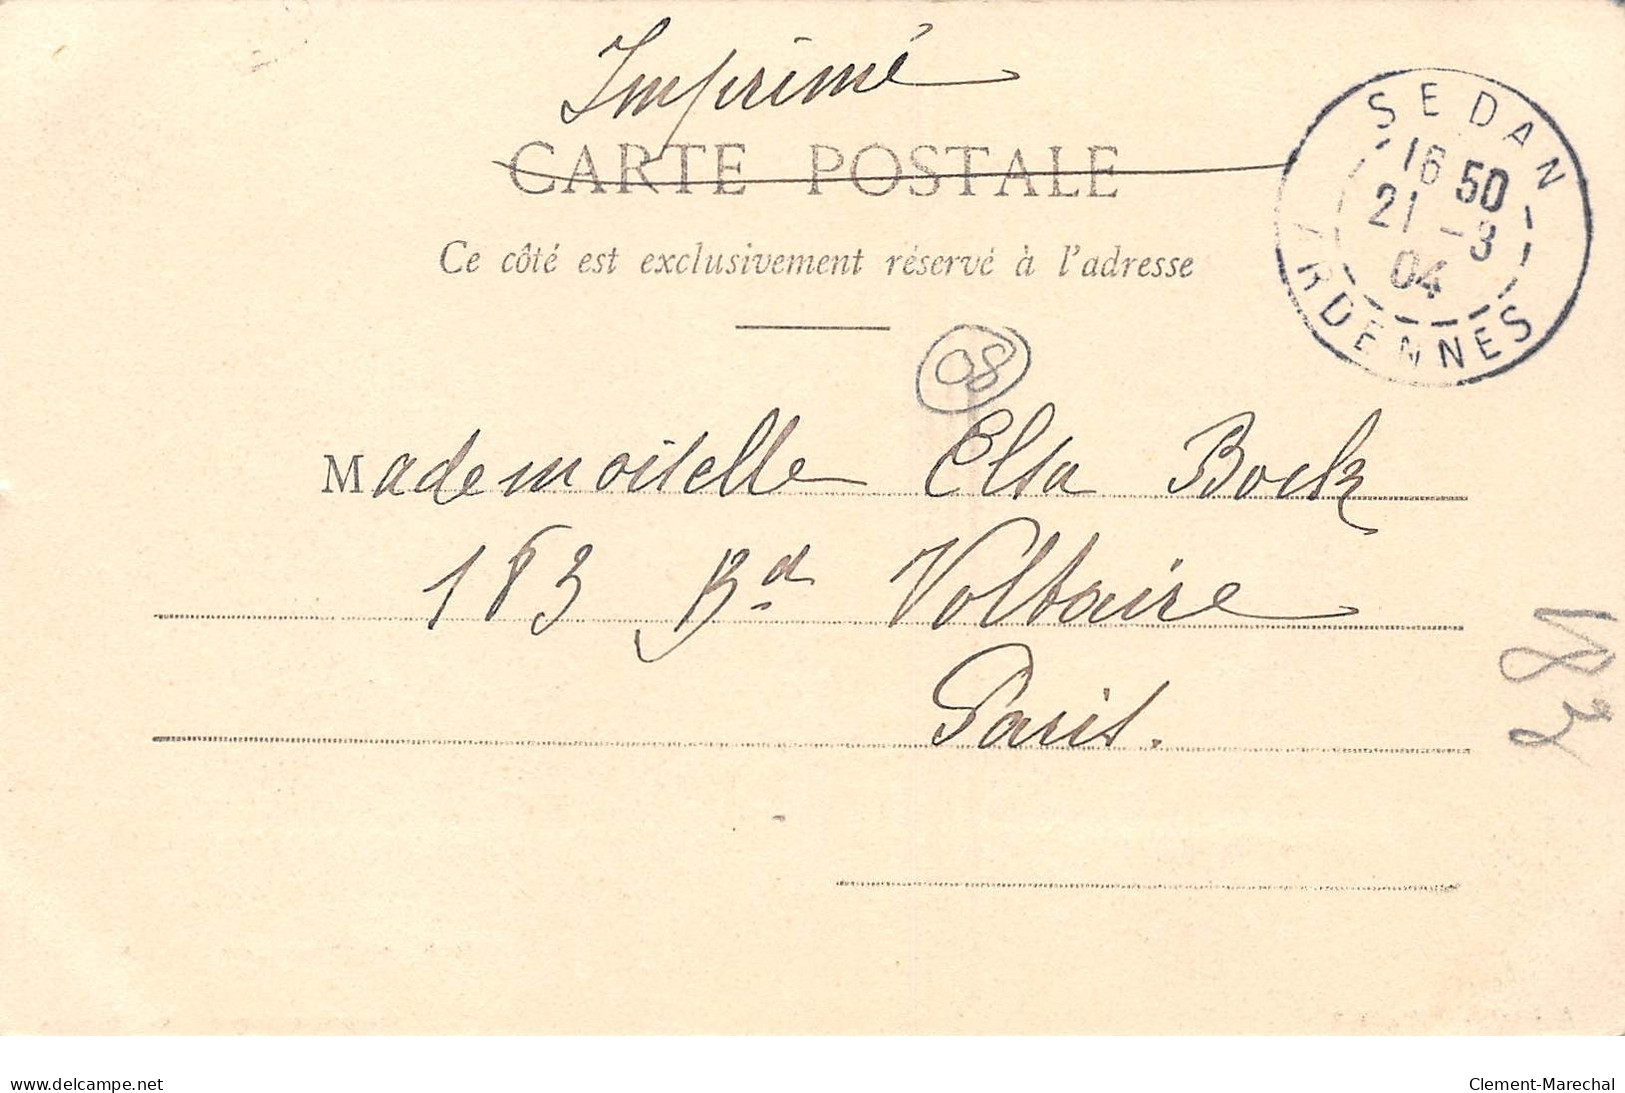 Imprimé
CARTE POSTALE
Ce côté est exclusivement réservé à l'adresse
SEDAN
16 50
21 -3
04
ARDENNES
08
Mademoiselle Elsa Bock
183 Bd Voltaire
Paris.
delcampe.net
Clement-Marechal